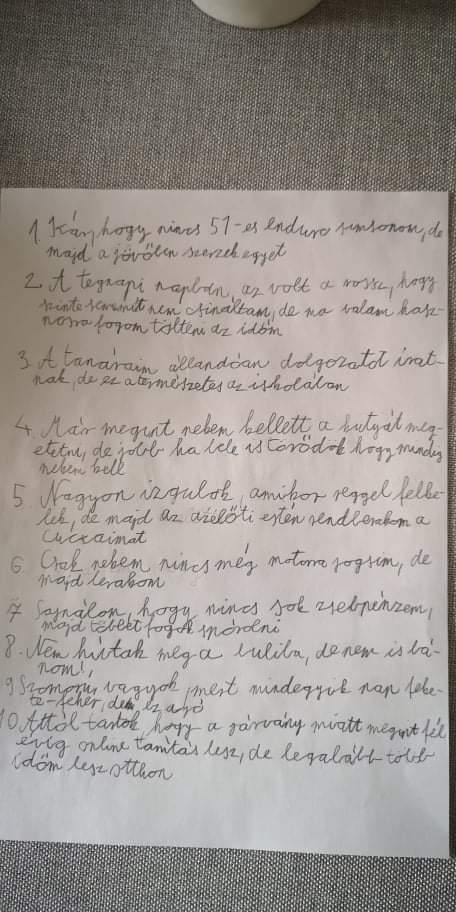 1. Kár, hogy nincs 51-es enduro simsonom, de
majd a jövőben szerzek egyet
2. A tegnapi napban, az volt a rossz, hogy
szinte semmit nem csináltam, de ma valam hasz-
nosra fogom tölteni az időm
3. A tanáraim állandóan dolgozatot írat-
nak, de ez a természetes az iskolában
4. Már megint nekem kellett a kutyát meg-
etetni, de jobb ha bele is törődök hogy mindig
nekem kell
5. Nagyon izgulok, amikor reggel felke-
lek, de majd az azelőtti estén rendberakom a
cuccaimat
6. Csak nekem nincs még motorra jogsim, de
majd lerakom
7 Sajnálom, hogy nincs sok zsebpénzem,
majd többet fogok spórolni
8. Nem hívtak meg a buliba, de nem is bá-
nom!,
9 Szomorú vagyok, mert mindegyik nap feke-
te-fehér, de ez a jó
10 Attól tartok, hogy a járvány miatt megint fél
évig online tanítás lesz, de legalább több
időm lesz otthon